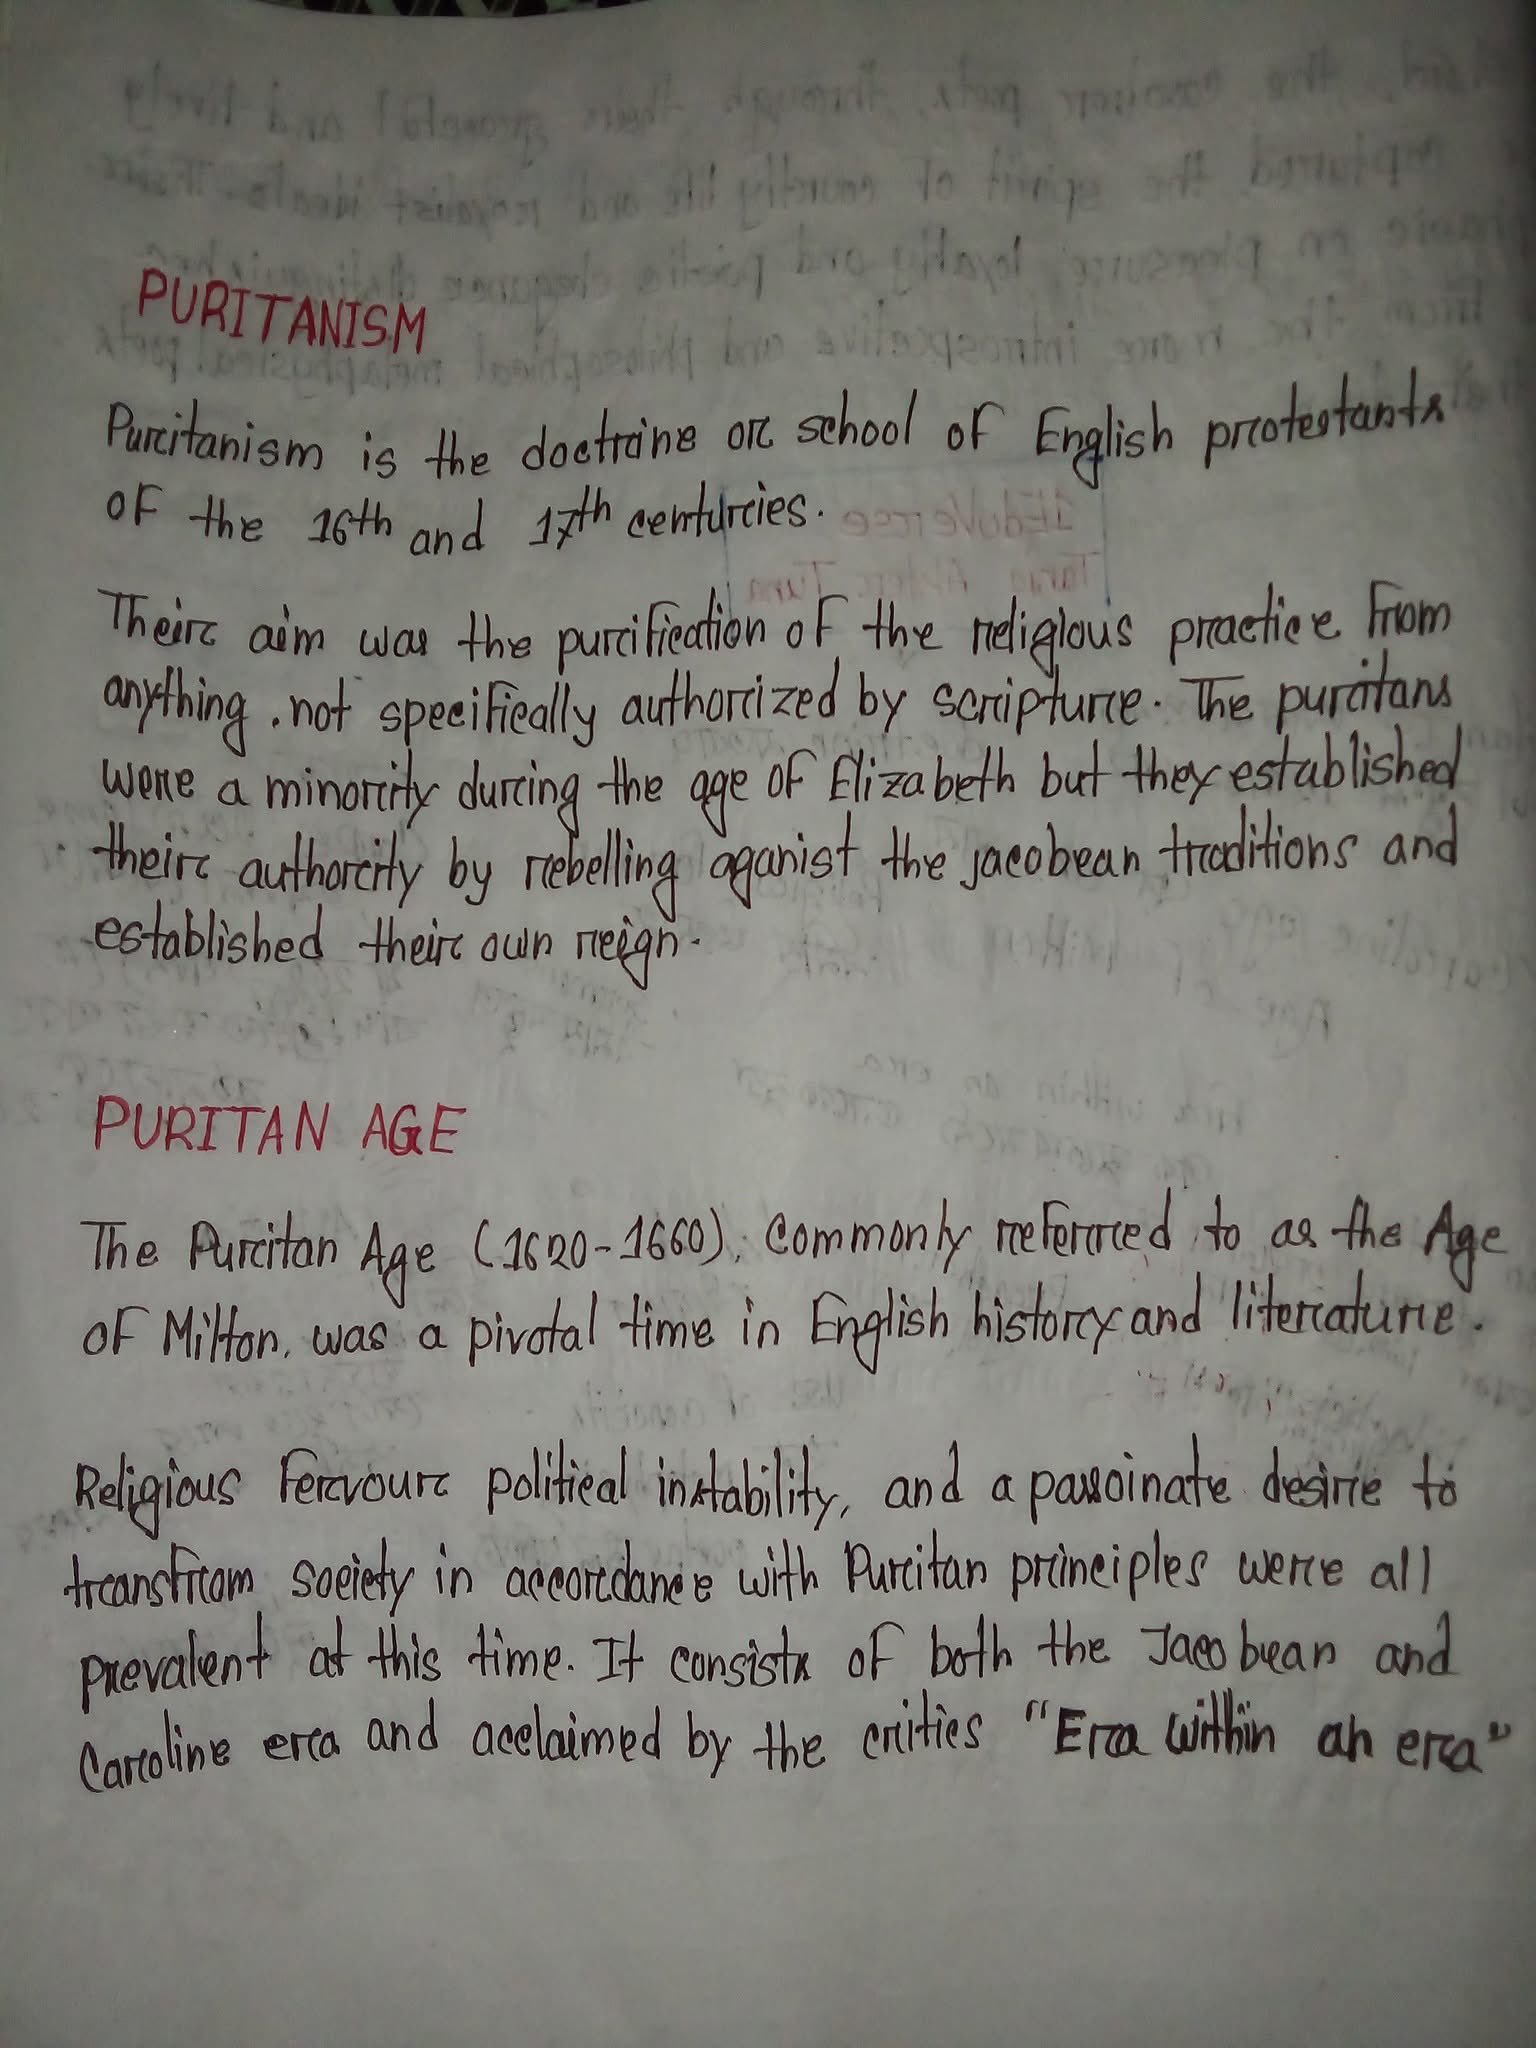 PURITANISM
Puritanism is the doctrine or school of English protestants
of the 16th and 17th centuries.
Their aim was the purification of the religious practice from
anything, not specifically authorized by scripture. The puritans
were a minority during the age of Elizabeth but they established
their authority by rebelling aganist the jacobean traditions and
established their own reign.
PURITAN AGE
The Puritan Age (1620-1660), Commonly referred to as the Age
of Milton, was a pivotal time in English history and literature.
Religious fervour political instability, and a passoinate desire to
transfrom society in accordance with Puritan principles were all
prevalent at this time. It consists of both the Jacobean and
Caroline era and acclaimed by the critics "Era within an era"